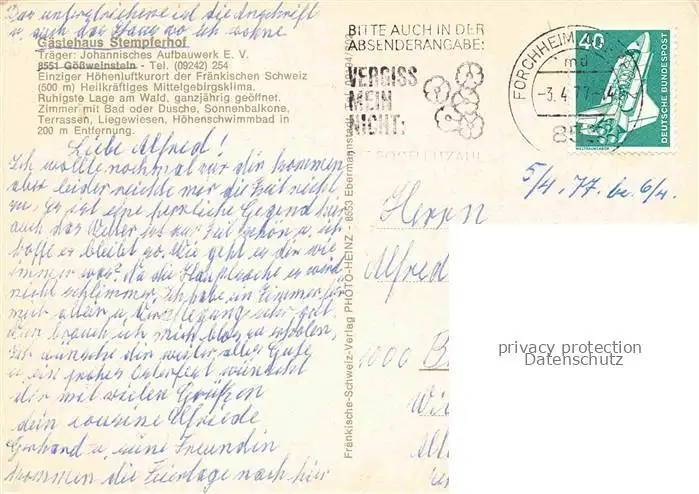 Das untergestrichene ist die Anschrift
u. auch das Haus wo ich wohne
Gästehaus Stempferhof
Träger: Johannisches Aufbauwerk E. V.
8551 Gößweinstein - Tel. (09242) 254
Einziger Höhenluftkurort der Fränkischen Schweiz
(500 m) Heilkräftiges Mittelgebirgsklima.
Ruhigste Lage am Wald, ganzjährig geöffnet.
Zimmer mit Bad oder Dusche, Sonnenbalkone,
Terrassen, Liegewiesen, Höhenschwimmbad in
200 m Entfernung.
Liebe Alfred!
Ich wollte nochmal vor dir kommen
aber leider reichte mir die Zeit nicht
zu. Es ist eine herrliche Gegend hier
auch das Wetter ist zur Zeit schön u. ich
hoffe es bleibt so. Wie geht es dir wie
immer was? Na die Hauptsache es wird
nicht schlimmer. Ich habe ein Zimmer für
mich allein u. Verpflegung sehr gut.
Nun brauch ich mich blos zu erholen,
Ich wünsche dir weiter alles Gute
u. ein frohes Osterfest wünscht
dir mit vielen Grüßen
dein cousine Elfriede
Gerhard u. seine Freundin
kommen die Feiertage nach hier
Fränkische-Schweiz-Verlag PHOTO-HEINZ - 8553 Ebermannstadt
BITTE AUCH IN DER
ABSENDERANGABE:
VERGISS
MEIN
NICHT:
POSTLEITZAHL
FORCHHEIM
md
-3.4.77.-4
40
DEUTSCHE BUNDESPOST
WELTRAUMLABOR
5/4. 77. be. 6/4.
Herrn
Alfred
1000 B
privacy protection
Datenschutz